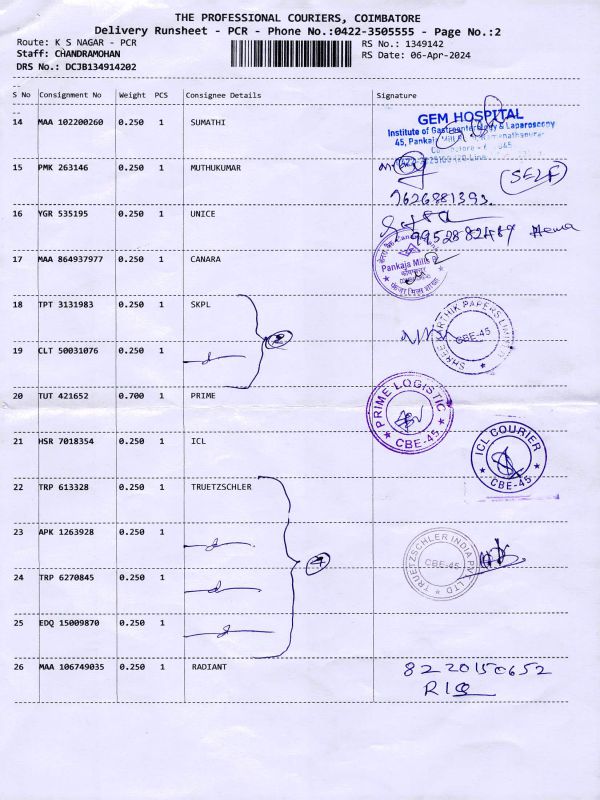 THE PROFESSIONAL COURIERS, COIMBATORE
Delivery Runsheet - PCR - Phone No.:0422-3505555 - Page No.:2
Route: K S NAGAR - PCR
RS No.: 1349142
Staff: CHANDRAMOHAN
RS Date: 06-Apr-2024
DRS No.: DCJB134914202
S No Consignment No Weight PCS Consignee Details Signature
14 MAA 102200260 0.250 1 SUMATHI
GEM HOSPITAL
Institute of Gastroenterology & Laparoscopy
45, Pankaj
15 PMK 263146 0.250 1 MUTHUKUMAR
(SELF)
7626881393.
16 YGR 535195 0.250 1 UNICE
9952882489 Hema
17 MAA 864937977 0.250 1 CANARA
Pankaja Mills
18 TPT 3131983 0.250 1 SKPL
2
SHREE KARTHIK PAPERS LIMITED
CBE-45
19 CLT 50031076 0.250 1
20 TUT 421652 0.700 1 PRIME
PRIME LOGISTIC
CBE-45
21 HSR 7018354 0.250 1 ICL
ICL COURIER
CBE-45
22 TRP 613328 0.250 1 TRUETZSCHLER
23 APK 1263928 0.250 1
4
TRUETZSCHLER INDIA PVT LTD
CBE-45
24 TRP 6270845 0.250 1
25 EDQ 15009870 0.250 1
26 MAA 106749035 0.250 1 RADIANT
8220150652